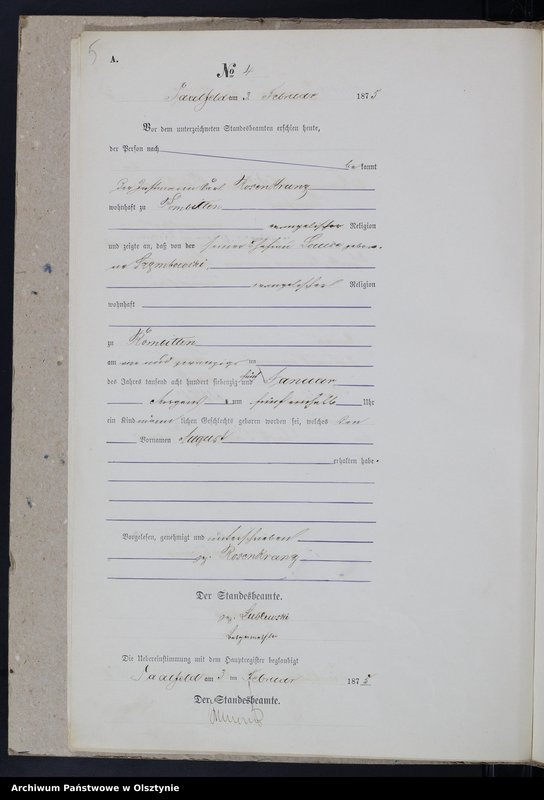 5
A.
No 4
Saalfeld am 3 Februar 1875
Vor dem unterzeichneten Standesbeamten erschien heute,
der Person nach
be kannt
der Instmann Carl Rosenkranz
wohnhaft zu Kombitten
evangelischer Religion
und zeigte an, daß von der seiner Ehefrau Louise gebore-
ne
evangelischer Religion
wohnhaft
zu Kombitten
am ein und zwanzigsten
des Jahres tausend acht hundert siebenzig und fünf Januar
Morgens um Uhr
ein Kind männlichen Geschlechts geboren worden sei, welches den
Vornamen August
erhalten habe.
Vorgelesen, genehmigt und unterschrieben
gz. Rosenkranz
Der Standesbeamte.
gez.
Bürgermeister
Die Uebereinstimmung mit dem Hauptregister beglaubigt
Saalfeld am 3 ten Februar 1875
Der Standesbeamte.
Archiwum Państwowe w Olsztynie